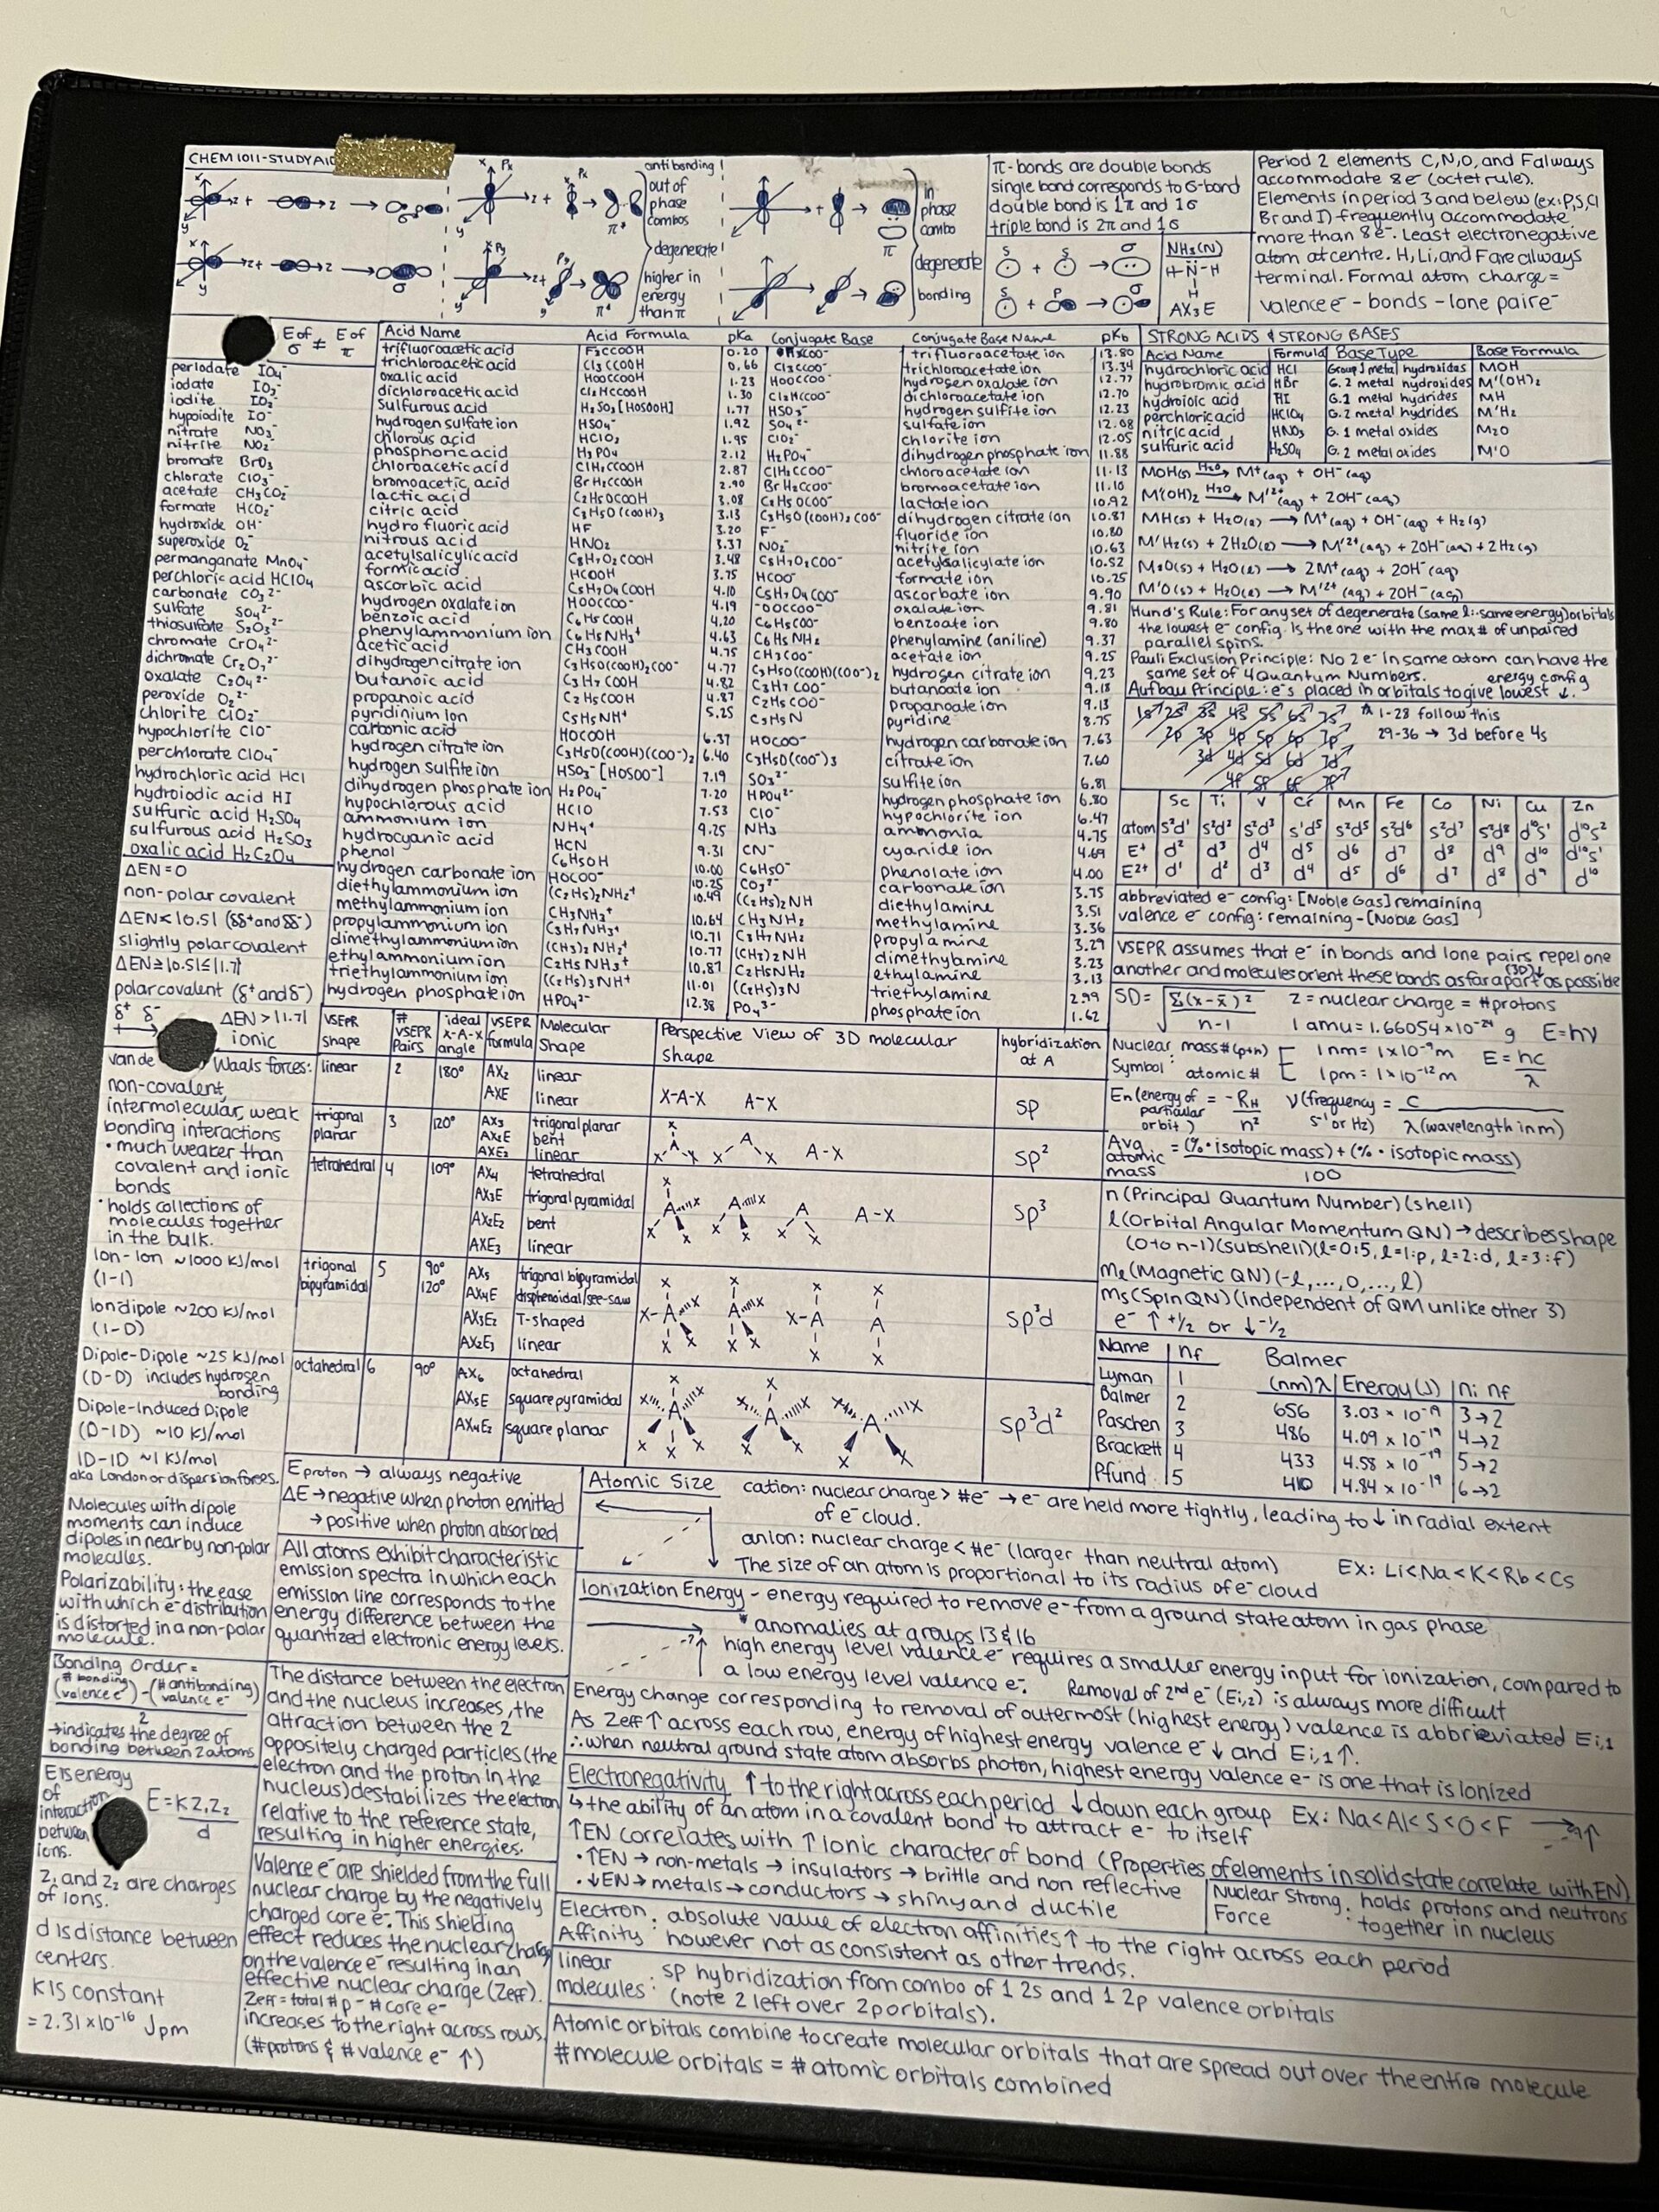 CHEM 1011 - STUDY AID
antibonding
out of
phase
combos
degenerate
higher in
energy
than π
in
phase
combo
degenerate
bonding
π-bonds are double bonds
single bond corresponds to σ-bond
double bond is 1π and 1σ
triple bond is 2π and 1σ
NH₃(N)
H-N-H
H
AX₃E
Period 2 elements C,N,O, and F always
accommodate 8e⁻ (octet rule).
Elements in period 3 and below (ex: P,S,Cl
Br and I) frequently accommodate
more than 8e⁻. Least electronegative
atom at centre. H, Li, and F are always
terminal. Formal atom charge =
valence e⁻ - bonds - lone pair e⁻
E of σ ≠ E of π
periodate IO₄⁻
iodate IO₃⁻
iodite IO₂⁻
hypoiodite IO⁻
nitrate NO₃⁻
nitrite NO₂⁻
bromate BrO₃
chlorate ClO₃⁻
acetate CH₃CO₂⁻
formate HCO₂⁻
hydroxide OH⁻
superoxide O₂⁻
permanganate MnO₄⁻
perchloric acid HClO₄
carbonate CO₃²⁻
sulfate SO₄²⁻
thiosulfate S₂O₃²⁻
chromate CrO₄²⁻
dichromate Cr₂O₇²⁻
oxalate C₂O₄²⁻
peroxide O₂²⁻
chlorite ClO₂⁻
hypochlorite ClO⁻
perchlorate ClO₄⁻
hydrochloric acid HCl
hydroiodic acid HI
sulfuric acid H₂SO₄
sulfurous acid H₂SO₃
oxalic acid H₂C₂O₄
Acid Name Acid Formula pKa Conjugate Base Conjugate Base Name pKb
trifluoroacetic acid F₃CCOOH 0.20 trifluoroacetate ion 13.80
trichloroacetic acid Cl₃CCOOH 0.66 Cl₃CCOO⁻ trichloroacetate ion 13.34
oxalic acid HOOCCOOH 1.23 HOOCCOO⁻ hydrogen oxalate ion 12.77
dichloroacetic acid Cl₂HCCOOH 1.30 Cl₂HCCOO⁻ dichloroacetate ion 12.70
sulfurous acid H₂SO₃ [HOSOOH] 1.77 HSO₃⁻ hydrogen sulfite ion 12.23
hydrogen sulfate ion HSO₄⁻ 1.92 SO₄²⁻ sulfate ion 12.08
chlorous acid HClO₂ 1.95 ClO₂⁻ chlorite ion 12.05
phosphoric acid H₃PO₄ 2.12 H₂PO₄⁻ dihydrogen phosphate ion 11.88
chloroacetic acid ClH₂CCOOH 2.87 ClH₂CCOO⁻ chloroacetate ion 11.13
bromoacetic acid BrH₂CCOOH 2.90 BrH₂CCOO⁻ bromoacetate ion 11.10
lactic acid C₂H₅OCOOH 3.08 C₂H₅OCOO⁻ lactate ion 10.92
citric acid C₃H₅O(COOH)₃ 3.13 C₃H₅O(COOH)₂COO⁻ dihydrogen citrate ion 10.87
hydrofluoric acid HF 3.20 F⁻ fluoride ion 10.80
nitrous acid HNO₂ 3.37 NO₂⁻ nitrite ion 10.63
acetylsalicylic acid C₈H₇O₂COOH 3.48 C₈H₇O₂COO⁻ acetylsalicylate ion 10.52
formic acid HCOOH 3.75 HCOO⁻ formate ion 10.25
ascorbic acid C₅H₇O₄COOH 4.10 C₅H₇O₄COO⁻ ascorbate ion 9.90
hydrogen oxalate ion HOOCCOO⁻ 4.19 ⁻OOCCOO⁻ oxalate ion 9.81
benzoic acid C₆H₅COOH 4.20 C₆H₅COO⁻ benzoate ion 9.80
phenylammonium ion C₆H₅NH₃⁺ 4.63 C₆H₅NH₂ phenylamine (aniline) 9.37
acetic acid CH₃COOH 4.75 CH₃COO⁻ acetate ion 9.25
dihydrogen citrate ion C₃H₅O(COOH)₂COO⁻ 4.77 C₃H₅O(COOH)(COO⁻)₂ hydrogen citrate ion 9.23
butanoic acid C₃H₇COOH 4.82 C₃H₇COO⁻ butanoate ion 9.18
propanoic acid C₂H₅COOH 4.87 C₂H₅COO⁻ propanoate ion 9.13
pyridinium ion C₅H₅NH⁺ 5.25 C₅H₅N pyridine 8.75
carbonic acid HOCOOH 6.37 HOCOO⁻ hydrogen carbonate ion 7.63
hydrogen citrate ion C₃H₅O(COOH)(COO⁻)₂ 6.40 C₃H₅O(COO⁻)₃ citrate ion 7.60
hydrogen sulfite ion HSO₃⁻ [HOSOO⁻] 7.19 SO₃²⁻ sulfite ion 6.81
dihydrogen phosphate ion H₂PO₄⁻ 7.20 HPO₄²⁻ hydrogen phosphate ion 6.80
hypochlorous acid HClO 7.53 ClO⁻ hypochlorite ion 6.47
ammonium ion NH₄⁺ 9.25 NH₃ ammonia 4.75
hydrocyanic acid HCN 9.31 CN⁻ cyanide ion 4.69
phenol C₆H₅OH 10.00 C₆H₅O⁻ phenolate ion 4.00
hydrogen carbonate ion HOCOO⁻ 10.25 CO₃²⁻ carbonate ion 3.75
diethylammonium ion (C₂H₅)₂NH₂⁺ 10.49 (C₂H₅)₂NH diethylamine 3.51
methylammonium ion CH₃NH₃⁺ 10.64 CH₃NH₂ methylamine 3.36
propylammonium ion C₃H₇NH₃⁺ 10.71 C₃H₇NH₂ propylamine 3.29
dimethylammonium ion (CH₃)₂NH₂⁺ 10.77 (CH₃)₂NH dimethylamine 3.23
ethylammonium ion C₂H₅NH₃⁺ 10.87 C₂H₅NH₂ ethylamine 3.13
triethylammonium ion (C₂H₅)₃NH⁺ 11.01 (C₂H₅)₃N triethylamine 2.99
hydrogen phosphate ion HPO₄²⁻ 12.38 PO₄³⁻ phosphate ion 1.62
STRONG ACIDS & STRONG BASES
Acid Name Formula Base Type Base Formula
hydrochloric acid HCl Group 1 metal hydroxides MOH
hydrobromic acid HBr G. 2 metal hydroxides M'(OH)₂
hydroiolic acid HI G. 1 metal hydrides MH
perchloric acid HClO₄ G. 2 metal hydrides M'H₂
nitric acid HNO₃ G. 1 metal oxides M₂O
sulfuric acid H₂SO₄ G. 2 metal oxides M'O
MOH(s) H₂O→ M⁺(aq) + OH⁻(aq)
M'(OH)₂ H₂O→ M'²⁺(aq) + 2OH⁻(aq)
MH(s) + H₂O(l) → M⁺(aq) + OH⁻(aq) + H₂(g)
M'H₂(s) + 2H₂O(l) → M'²⁺(aq) + 2OH⁻(aq) + 2H₂(g)
M₂O(s) + H₂O(l) → 2M⁺(aq) + 2OH⁻(aq)
M'O(s) + H₂O(l) → M'²⁺(aq) + 2OH⁻(aq)
Hund's Rule: For any set of degenerate (same l ∴ same energy) orbitals
the lowest e⁻ config. is the one with the max # of unpaired
parallel spins.
Pauli Exclusion Principle: No 2 e⁻ in same atom can have the
same set of 4 Quantum Numbers.
Aufbau Principle: e⁻s placed in orbitals to give lowest energy config ↓.
1s 2s 3s 4s 5s 6s 7s
2p 3p 4p 5p 6p 7p
3d 4d 5d 6d 7d
4f 5f 6f 7f
1-28 follow this
29-36 → 3d before 4s
Sc Ti V Cr Mn Fe Co Ni Cu Zn
atom s²d¹ s²d² s²d³ s¹d⁵ s²d⁵ s²d⁶ s²d⁷ s²d⁸ d¹⁰s¹ d¹⁰s²
E⁺ d² d³ d⁴ d⁵ d⁶ d⁷ d⁸ d⁹ d¹⁰ d¹⁰s¹
E²⁺ d¹ d² d³ d⁴ d⁵ d⁶ d⁷ d⁸ d⁹ d¹⁰
abbreviated e⁻ config: [Noble Gas] remaining
valence e⁻ config: remaining - [Noble Gas]
VSEPR assumes that e⁻ in bonds and lone pairs repel one
another and molecules orient these bonds as far apart (3D) as possible
SD = √Σ(x-x̄)² / n-1
Z = nuclear charge = # protons
1 amu = 1.66054 × 10⁻²⁴ g E = hν
Nuclear Symbol: mass # (p+n) atomic #
1 nm = 1×10⁻⁹ m
1 pm = 1×10⁻¹² m
E = hc/λ
En (energy of particular orbit) = -RH/n²
ν (frequency s⁻¹ or Hz) = c / λ (wavelength in m)
Avg atomic mass = (% · isotopic mass) + (% · isotopic mass) / 100
n (Principal Quantum Number) (shell)
l (Orbital Angular Momentum QN) → describes shape
(0 to n-1) (subshell) (l=0:s, l=1:p, l=2:d, l=3:f)
ml (Magnetic QN) (-l,...,0,...,l)
ms (Spin QN) (independent of QM unlike other 3)
e⁻ ↑ +1/2 or ↓ -1/2
Name nf
Lyman 1
Balmer 2
Paschen 3
Brackett 4
Pfund 5
Balmer
(nm) λ Energy (J) ni nf
656 3.03 × 10⁻¹⁹ 3→2
486 4.09 × 10⁻¹⁹ 4→2
433 4.58 × 10⁻¹⁹ 5→2
410 4.84 × 10⁻¹⁹ 6→2
ΔEN = 0
non-polar covalent
ΔEN < |0.5| (δδ⁺ and δδ⁻)
slightly polar covalent
ΔEN ≥ |0.5| ≤ |1.7|
polar covalent (δ⁺ and δ⁻)
δ⁺ δ⁻
ΔEN > |1.7|
ionic
van de Waals forces:
non-covalent,
intermolecular, weak
bonding interactions
• much weaker than
covalent and ionic
bonds
• holds collections of
molecules together
in the bulk.
Ion-Ion ~1000 KJ/mol
(I-I)
Ion dipole ~200 KJ/mol
(I-D)
Dipole-Dipole ~25 KJ/mol
(D-D) includes hydrogen
bonding
Dipole-Induced Dipole
(D-ID) ~10 KJ/mol
ID-ID ~1 KJ/mol
aka London or dispersion forces.
Molecules with dipole
moments can induce
dipoles in nearby non-polar
molecules.
Polarizability: the ease
with which e⁻ distribution
is distorted in a non-polar
molecule.
VSEPR Shape # VSEPR Pairs ideal X-A-X angle VSEPR formula Molecular Shape Perspective View of 3D molecular shape hybridization at A
linear 2 180° AX₂ linear X-A-X sp
AXE linear A-X
trigonal planar 3 120° AX₃ trigonal planar sp²
AX₂E bent
AXE₂ linear A-X
tetrahedral 4 109° AX₄ tetrahedral sp³
AX₃E trigonal pyramidal
AX₂E₂ bent
AXE₃ linear A-X
trigonal bipyramidal 5 90° 120° AX₅ trigonal bipyramidal sp³d
AX₄E disphenoidal/see-saw
AX₃E₂ T-shaped
AX₂E₃ linear
octahedral 6 90° AX₆ octahedral sp³d²
AX₅E square pyramidal
AX₄E₂ square planar
Eproton → always negative
ΔE → negative when photon emitted
→ positive when photon absorbed
All atoms exhibit characteristic
emission spectra in which each
emission line corresponds to the
energy difference between the
quantized electronic energy levels.
Atomic Size
cation: nuclear charge > #e⁻ → e⁻ are held more tightly, leading to ↓ in radial extent
of e⁻ cloud.
anion: nuclear charge < #e⁻ (larger than neutral atom)
The size of an atom is proportional to its radius of e⁻ cloud
EX: Li<Na<K<Rb<Cs
Ionization Energy - energy required to remove e⁻ from a ground state atom in gas phase
* anomalies at groups 13 & 16
high energy level valence e⁻ requires a smaller energy input for ionization, compared to
a low energy level valence e⁻. Removal of 2nd e⁻ (Ei,2) is always more difficult
Energy change corresponding to removal of outermost (highest energy) valence is abbrieviated Ei,1
As Zeff ↑ across each row, energy of highest energy valence e⁻ ↓ and Ei,1 ↑.
∴ when neutral ground state atom absorbs photon, highest energy valence e⁻ is one that is ionized
Bonding Order =
(# bonding valence e⁻) - (# antibonding valence e⁻)
2
→ indicates the degree of
bonding between 2 atoms
The distance between the electron
and the nucleus increases, the
attraction between the 2
oppositely charged particles (the
electron and the proton in the
nucleus) destabilizes the electron
relative to the reference state,
resulting in higher energies.
E is energy
of
interaction
between
ions.
E = KZ₁Z₂
d
Z₁ and Z₂ are charges
of ions.
d is distance between
centers.
K is constant
= 2.31 × 10⁻¹⁶ J pm
Valence e⁻ are shielded from the full
nuclear charge by the negatively
charged core e⁻. This shielding
effect reduces the nuclear charge
on the valence e⁻ resulting in an
effective nuclear charge (Zeff).
Zeff = total # p⁻ # core e⁻
increases to the right across rows.
(# protons & # valence e⁻ ↑)
Electronegativity ↑ to the right across each period ↓ down each group Ex: Na<Al<S<O<F
↳ the ability of an atom in a covalent bond to attract e⁻ to itself
↑EN correlates with ↑ ionic character of bond (Properties of elements in solid state correlate with EN)
• ↑EN → non-metals → insulators → brittle and non reflective
• ↓EN → metals → conductors → shiny and ductile
Nuclear Strong Force : holds protons and neutrons
together in nucleus
Electron Affinity : absolute value of electron affinities ↑ to the right across each period
however not as consistent as other trends.
linear molecules : sp hybridization from combo of 1 2s and 1 2p valence orbitals
(note 2 left over 2p orbitals).
Atomic orbitals combine to create molecular orbitals that are spread out over the entire molecule
# molecule orbitals = # atomic orbitals combined